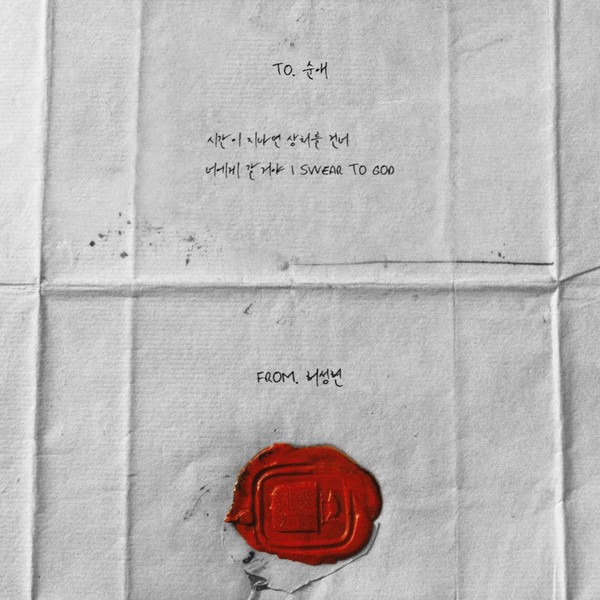 TO. 순애
시간이 지나면 상처를 건너
너에게 갈거야 I SWEAR TO GOD
FROM. 허성현